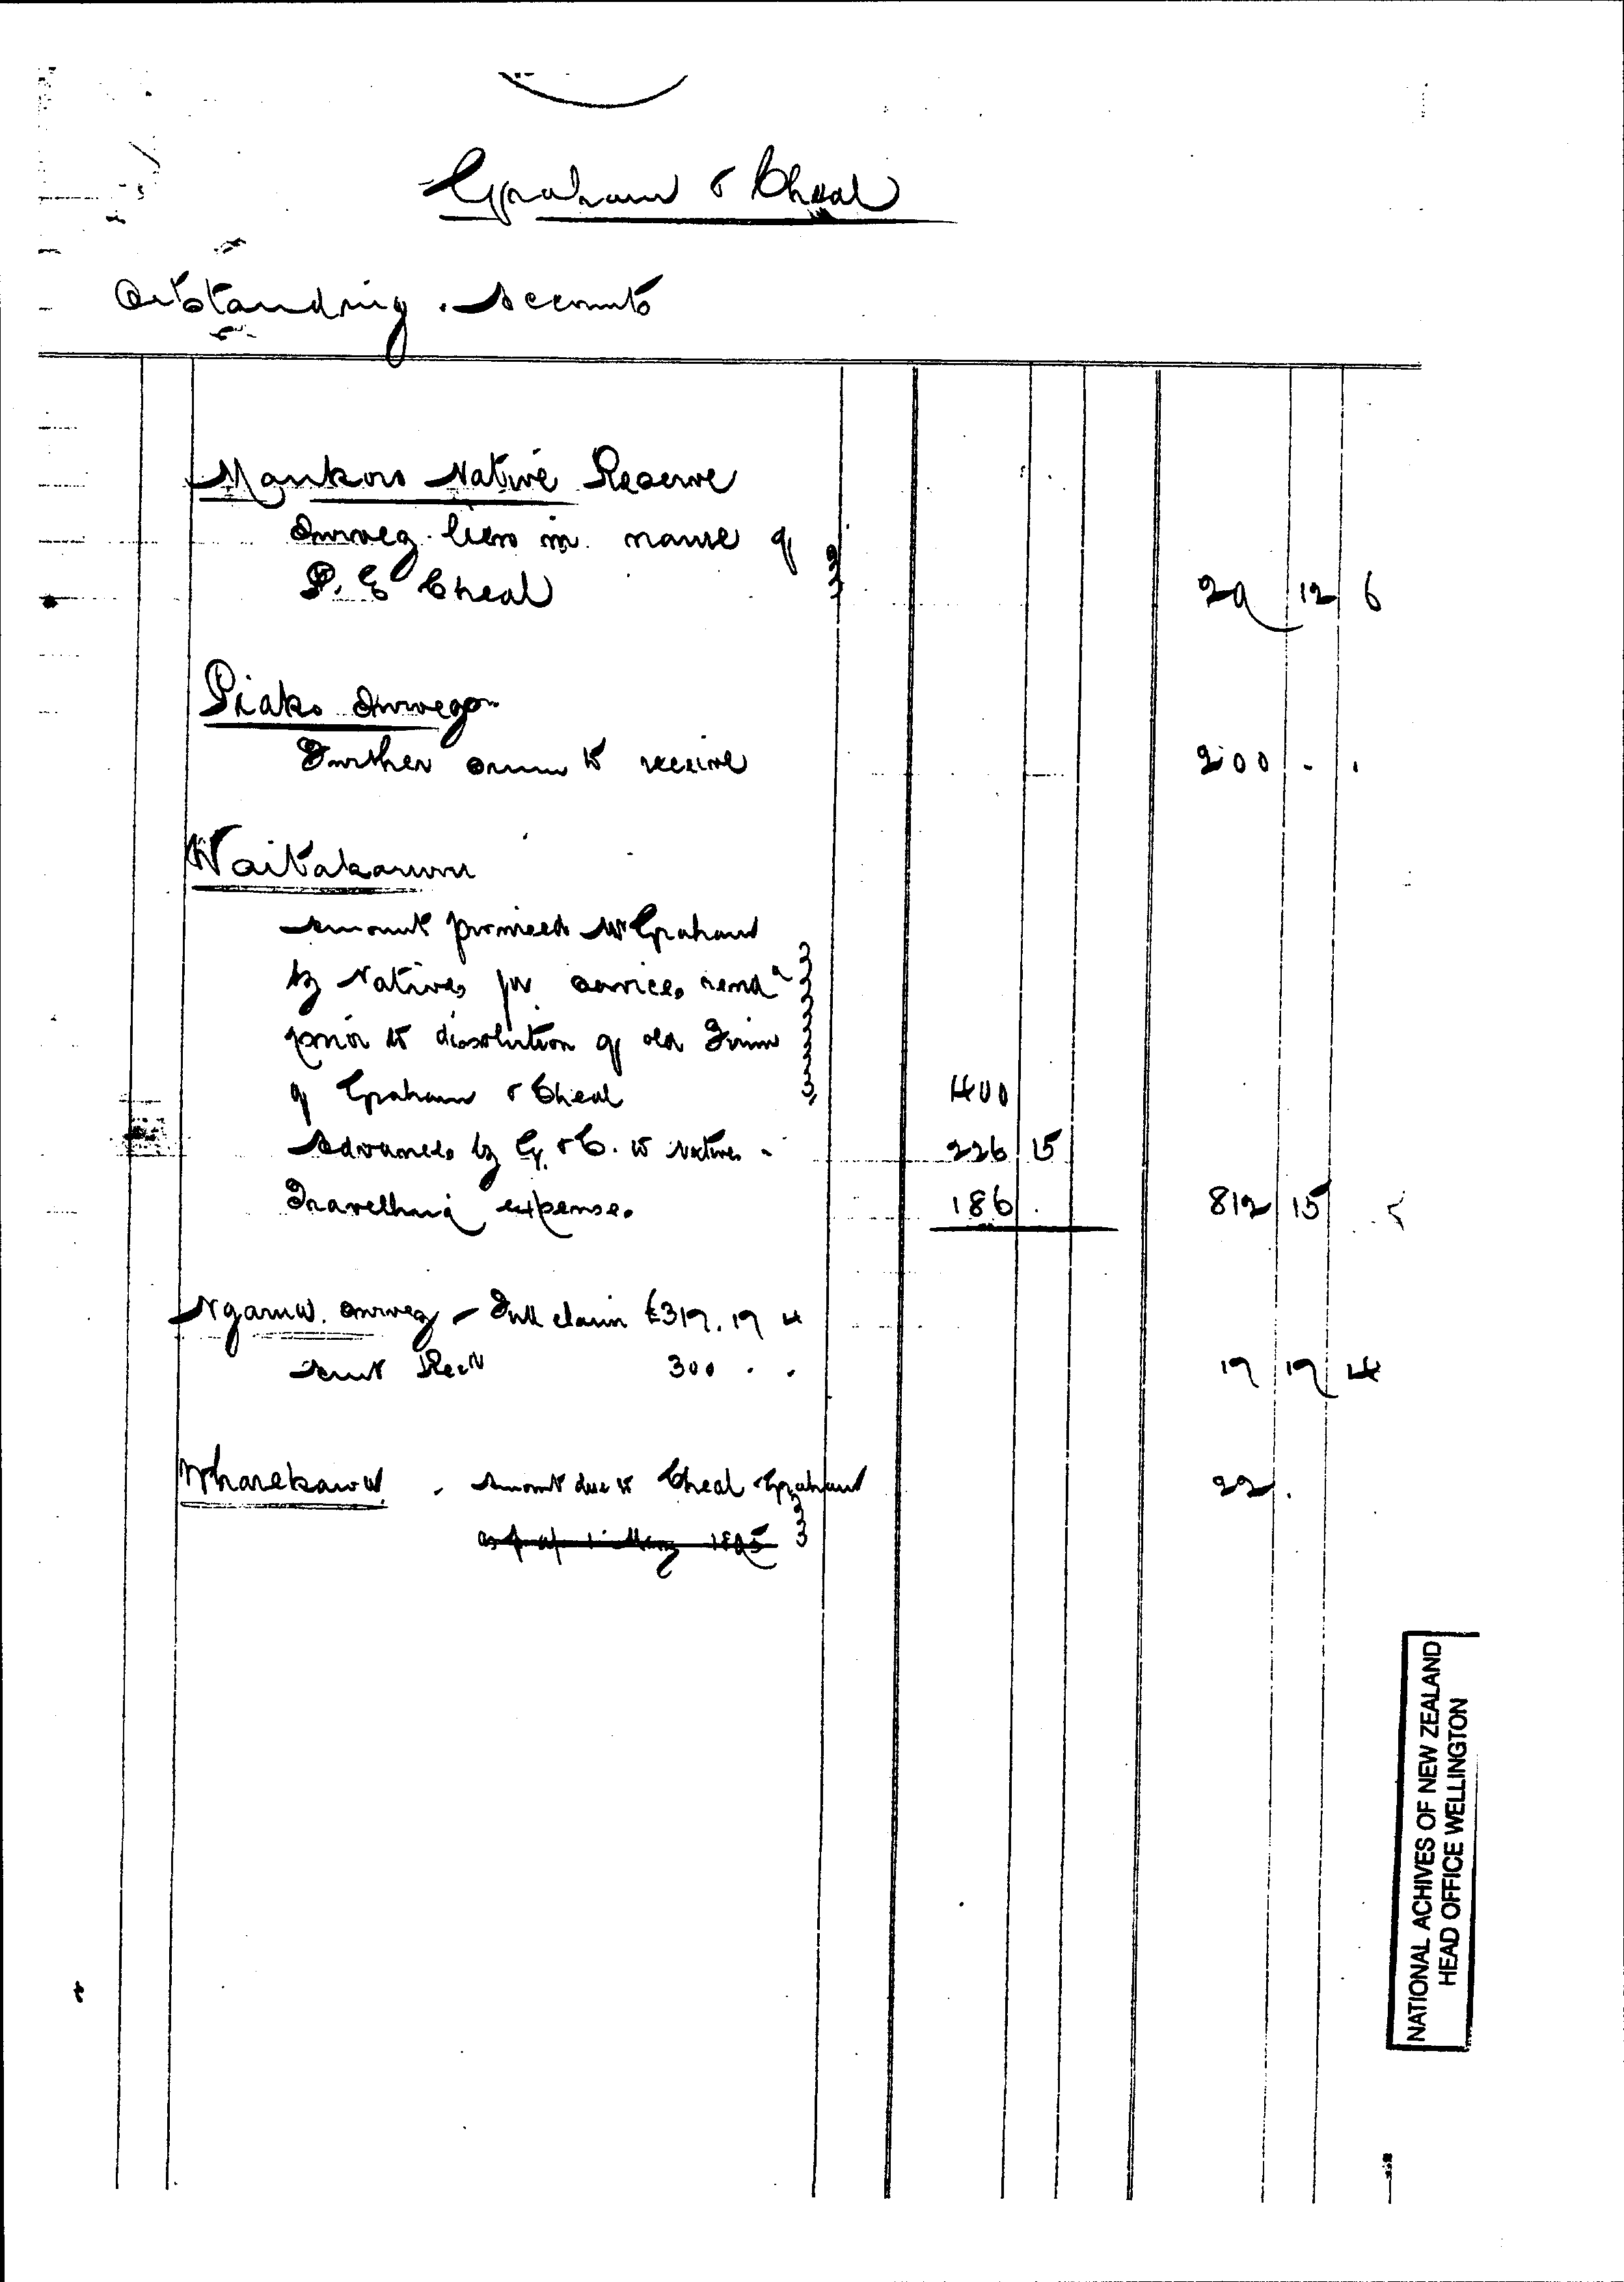 Graham & Cheal
Outstanding Accounts
Native Reserve
Survey lien in name of
P. E Cheal 29 12 6
Piako Surveys
Further sum to receive 200 . .
Waitakaruru
Amount promised Mr Graham
by Natives for services rend^d
prior to dissolution of old Firm
of Graham & Cheal 400
Advances by G. & C. to Natives - 226 15
Travelling expenses 186 . 812 15
Survey - Full claim £319. 19 4
Amt Rec^d 300 . . 19 19 4
Wharekawa . Amount due to Cheal & Graham 22 .
1895
NATIONAL ACHIVES OF NEW ZEALAND
HEAD OFFICE WELLINGTON